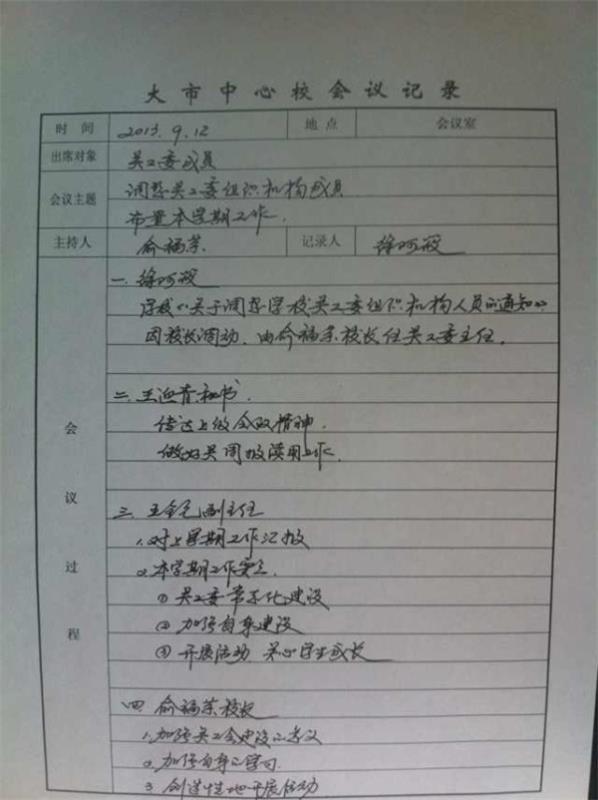 大市中心校会议记录
时间 2013.9.12 地点 会议室
出席对象 关工委成员
会议主题 调整关工委组织机构成员
布置本学期工作.
主持人 俞福荣 记录人 徐阿毅
会议过程
一. 徐阿毅
学校《关于调整学校关工委组织机构人员的通知》
因校长调动, 由俞福荣校长任关工委主任.
二. 王迎青秘书.
传达上级会议精神.
做好关周报读用工作.
三. 王金副主任
1. 对上学期工作汇报
2. 本学期工作
① 关工委常态化建设
② 加强自身建设
③ 开展活动 关心学生成长
四. 俞福荣校长
1. 加强关工会建设的意义
2. 加强自身的学习
3. 创造性地开展活动